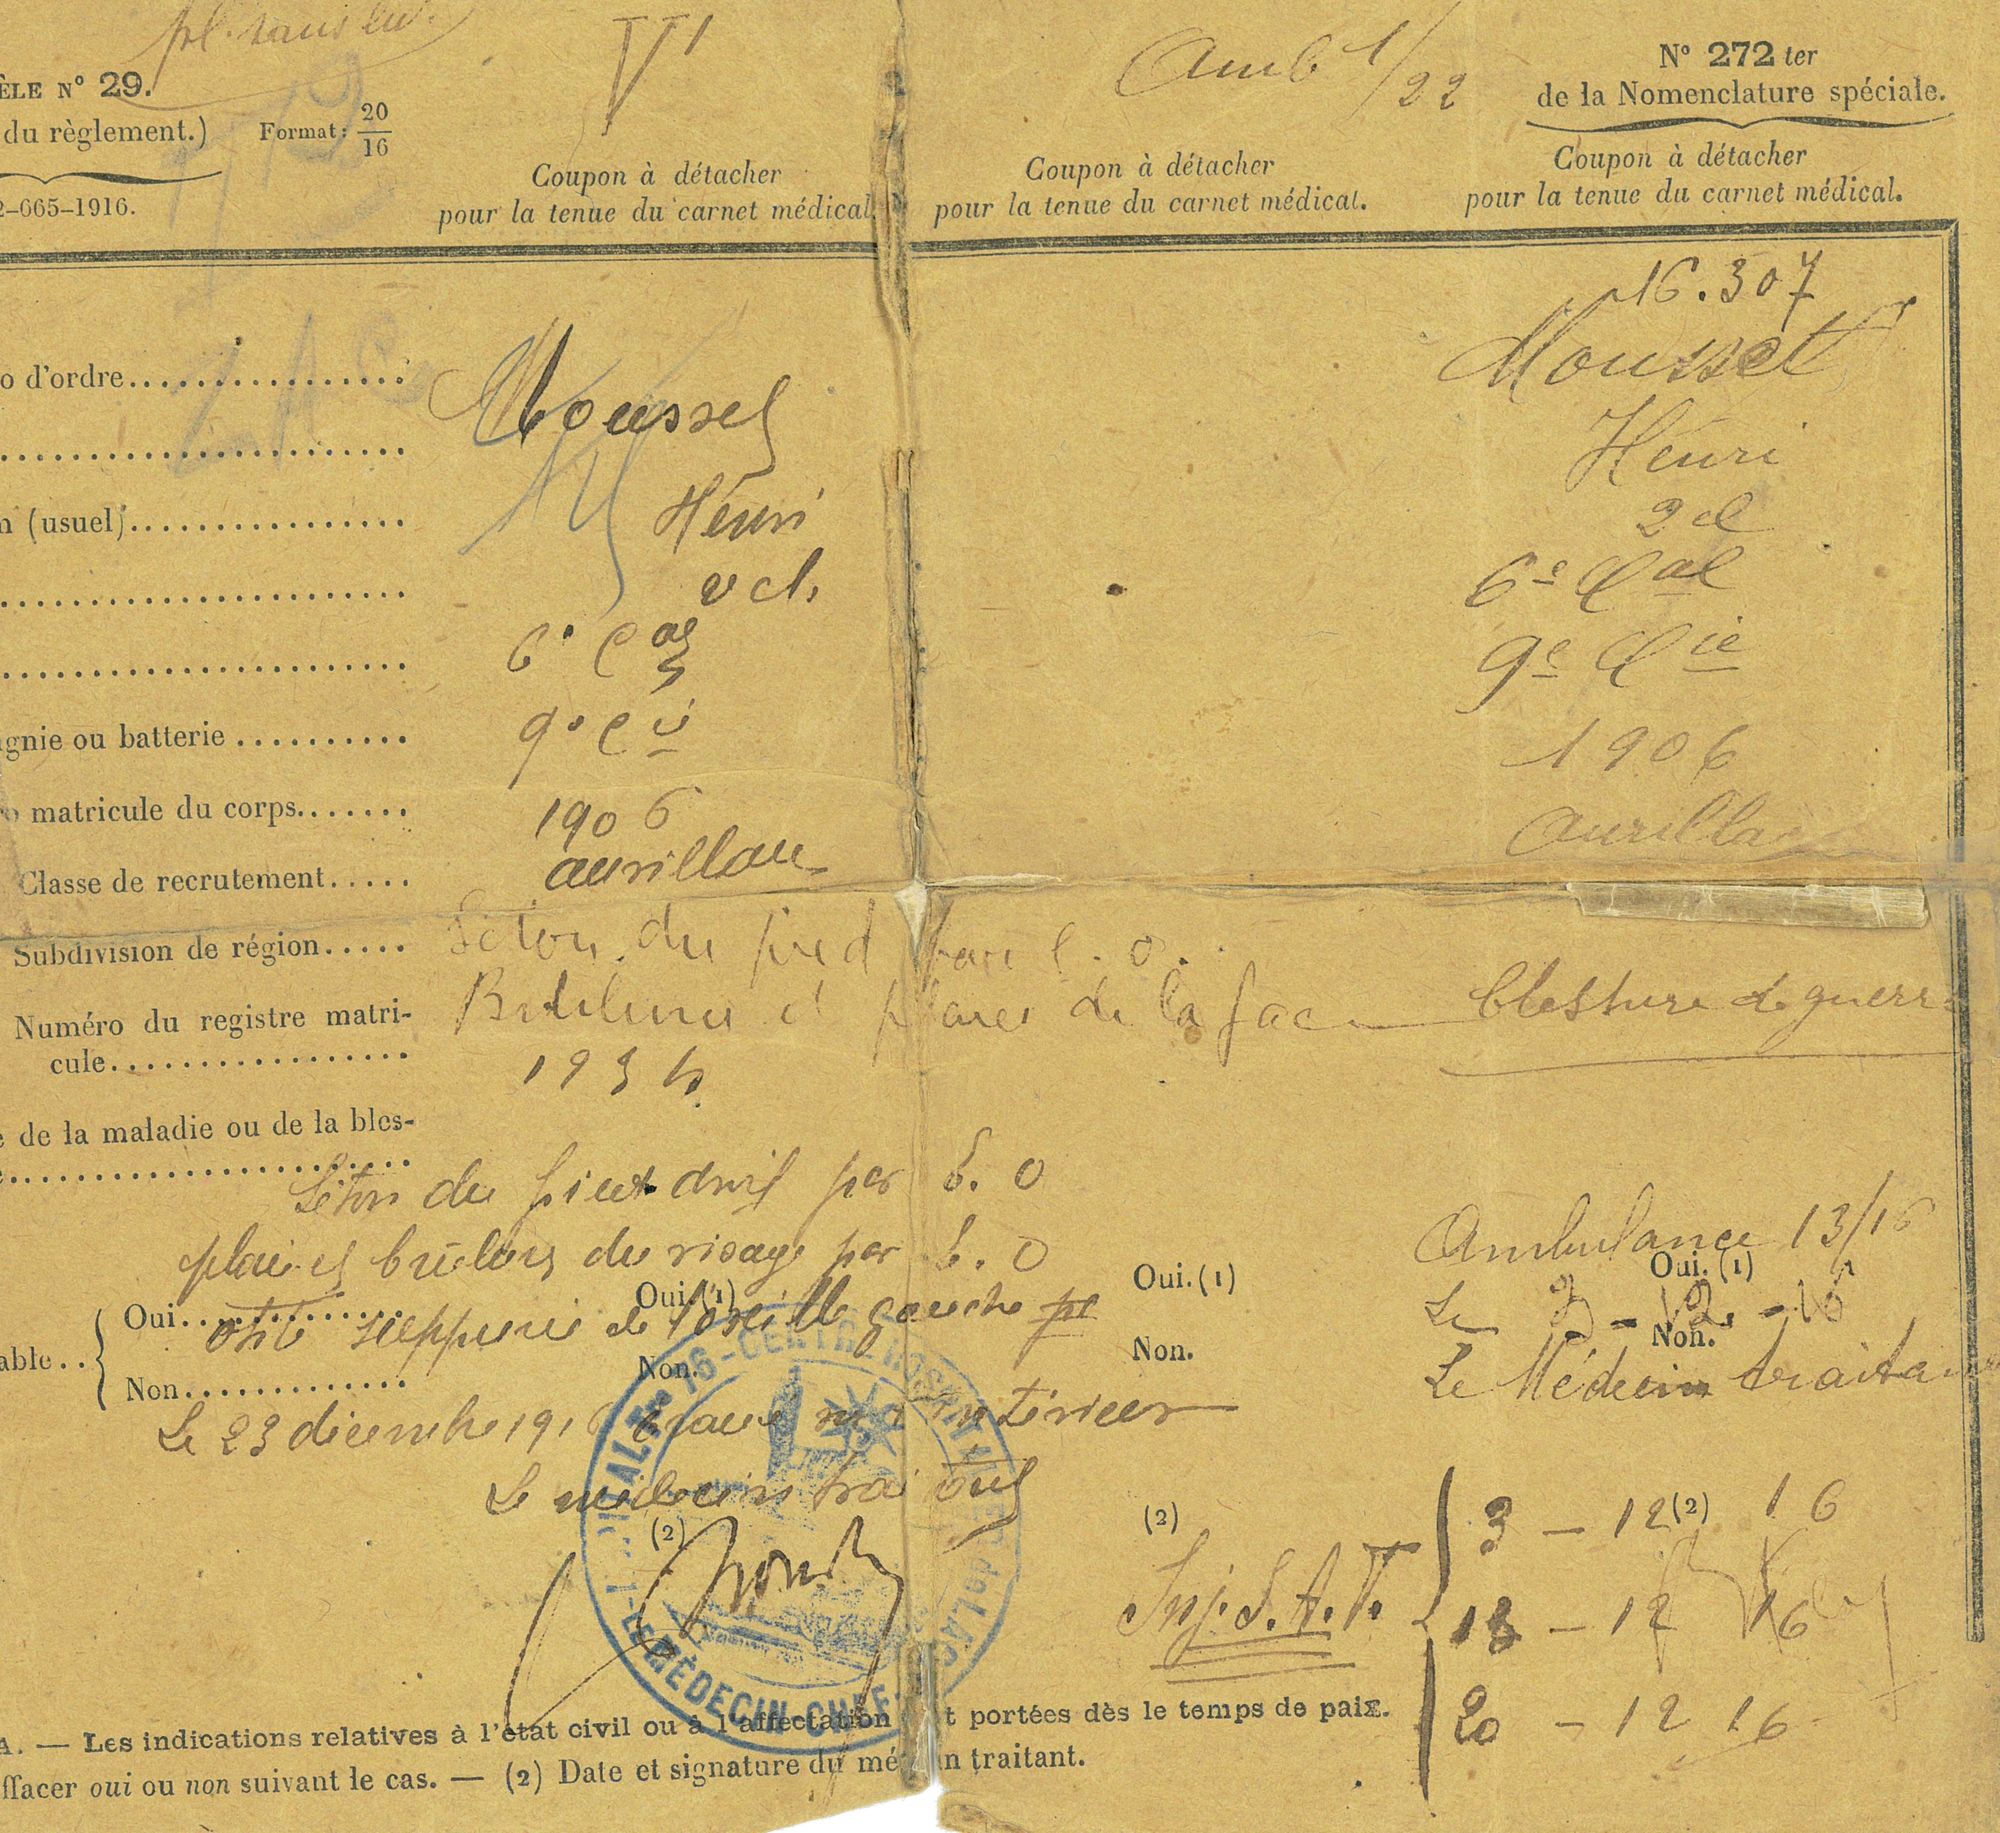 V¹
Amb 1/22
N° 272 ter
ÈLE N° 29.
de la Nomenclature spéciale.
du règlement.) Format: 20/16
Coupon à détacher
pour la tenue du carnet médical.
Coupon à détacher
pour la tenue du carnet médical.
Coupon à détacher
pour la tenue du carnet médical.
2-665-1916.
16.307
o d'ordre
Mousset
Mousset
Henri
n (usuel)
Henri
2 cl
2 cl.
6e Cal
6e Cal
9e Cie
gnie ou batterie
9e Cie
1906
o matricule du corps
1906
Aurillac
Classe de recrutement
aurillac
Subdivision de région
Séton du pied par e. o.
Numéro du registre matri-
cule
Brûlures et plaies de la face
blessure de guerre
193
e de la maladie ou de la bles-
Séton du pied droit par é. o
Ambulance 13/16
plaie et brûlures du visage par é. o
Oui
Oui. (1)
Oui. (1)
Oui. (1)
otite suppurée de l'oreille gauche
Le 3-12-16
able
Non
Non.
Non.
Non.
Le Médecin traitant
Le 23 décembre 1916 Évacué sur l'intérieur
Le médecin traitant
(2)
(2)
(2)
3 - 12 16
Inj. S. A. T.
13 - 12 16
20 - 12 16
76 - CENTRE HOSPITALIER
LE MÉDECIN-CHEF
A. — Les indications relatives à l'état civil ou à l'affectation t portées dès le temps de paix.
ffacer oui ou non suivant le cas. — (2) Date et signature du mé n traitant.